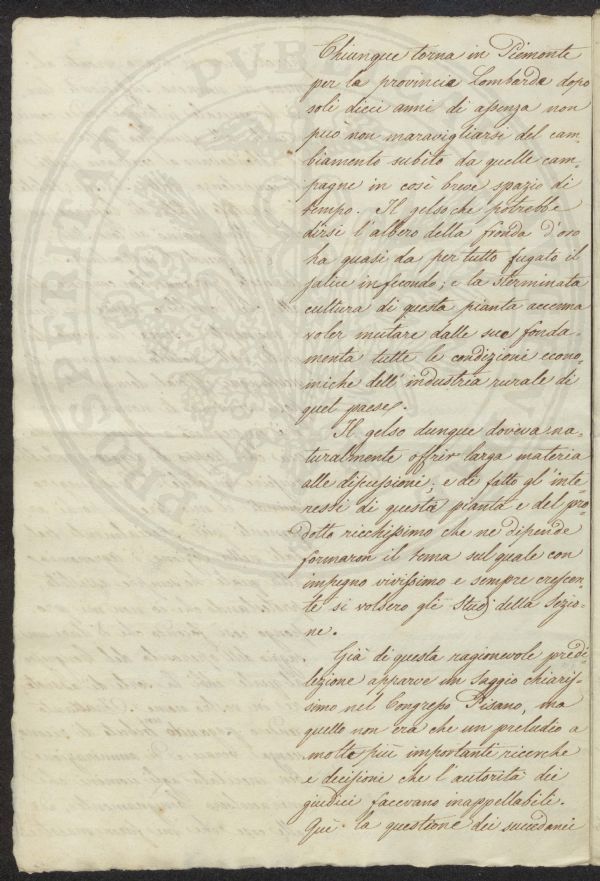 Chiunque torna in Piemonte
per la provincia Lombarda dopo
soli dieci anni di assenza non
può non maravigliarsi del cam-
biamento subìto da quelle cam-
pagne in così breve spazio di
tempo. Il gelso che potrebbe
dirsi l'albero della fronda d'oro
ha quasi da per tutto fugato il
salice infecondo; e la sterminata
cultura di questa pianta accenna
voler mutare dalle sue fonda-
menta tutte le condizioni econo-
miche dell'industria rurale di
quel paese.
Il gelso dunque doveva na-
turalmente offrir larga materia
alle discussioni; e di fatto gl'inte-
ressi di questa pianta e del pro-
dotto ricchissimo che ne dipende
formaron il tema sul quale con
impegno vivissimo e sempre crescen-
te si volsero gli studj della Sezio-
ne.
Già di questa ragionevole predi-
lezione apparve un saggio chiaris-
simo nel Congresso Pisano, ma
quello non era che un preludio a
molte più importanti ricerche
e decisioni che l'autorità dei
giudici facevano inappellabili.
Quì la questione dei succedanei
POSTERITATI PVBLICAE